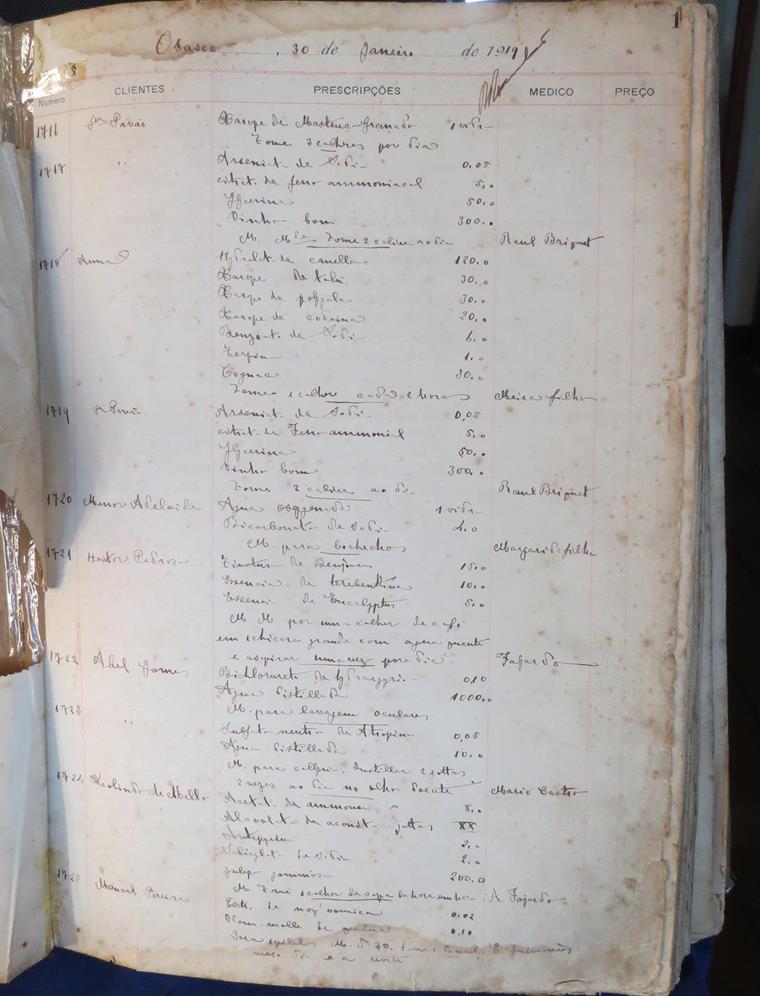 1
Osasco, 30 de Janeiro de 1919
Numero CLIENTES PRESCRIPÇÕES MEDICO PREÇO
1716 Pavão Xarope de 1 vidro
Tome 3 calices por dia
1717 " Arseniato de Sodio 0,05
citrato de ferro ammoniacal 5,0
Glycerina 50,0
Vinho bom 300,0
M. Tome 2 calices ao dia Raul Briquet
1718 Anna Hydrolato de canella 120,0
Xarope de tolu 30,0
Xarope de polygala 30,0
Xarope de codeina 20,0
Benzoato de Sodio
Terpina 1,0
Cognac 30,0
Tome 1 colher cada 2 horas Meira filho
1719 Pavão Arseniato de Sodio 0,05
citrato de Ferro ammoniacal 5,0
Glycerina 50,0
Vinho bom 300,0
Tome 2 calices ao dia Raul Briquet
1720 Menor Adelaide Agua oxygenada 1 vidro
Bicarbonato de Sodio 4,0
M. para bochechos Margarido filho
1721 Heitor Pedroso Tinctura de Benjoim 15,0
Essencia de terebentina 10,0
Essencia de Eucalyptus 5,0
M. M. por uma colher de café
em chicara grande com agua quente
e aspirar uma vez por dia Fajardo
1722 Abel Gomes Bichlorureto de hydrargyrio 0,10
Agua distillada 1000,0
M. para lavagem oculares
1723 " Sulfato neutro de Atropina 0,05
Agua distillada 10,0
M. para collyrio. Instillar 2 gottas
2 vezes ao dia no olho doente Mario Castro
1724 de Mello Acetato de ammonea 8,0
Alcoolato de aconito gottas XX
Antipyrina 2,0
Salicylato de Sodio 2,0
Julepo gommoso 200,0
M. Tome 1 colher de sopa de hora em hora A. Fajardo
1725 Manoel Pereira Ext. de noz vomica 0,02
de quina 0,10
M. 30. tome
meio dia e a noite